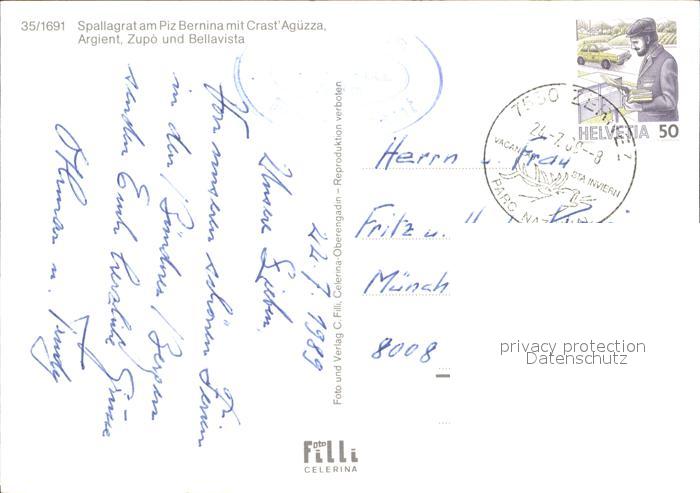 35/1691 Spallagrat am Piz Bernina mit Crast'Agüzza,
Argient, Zupò und Bellavista
22. 7. 1989
Unsere Lieben
Von unseren schönen Ferien
in den Bündner Bergen
senden Euch herzliche Grüsse
Othmar u. Trudy
Foto und Verlag C. Filli, Celerina-Oberengadin – Reproduktion verboten
7530 ZERNEZ
24.-7.89-8
PARC NAZIUNAL
HELVETIA 50
Herrn u. Frau
Fritz u.
Münch
8008
privacy protection
Datenschutz
Foto
Filli
CELERINA